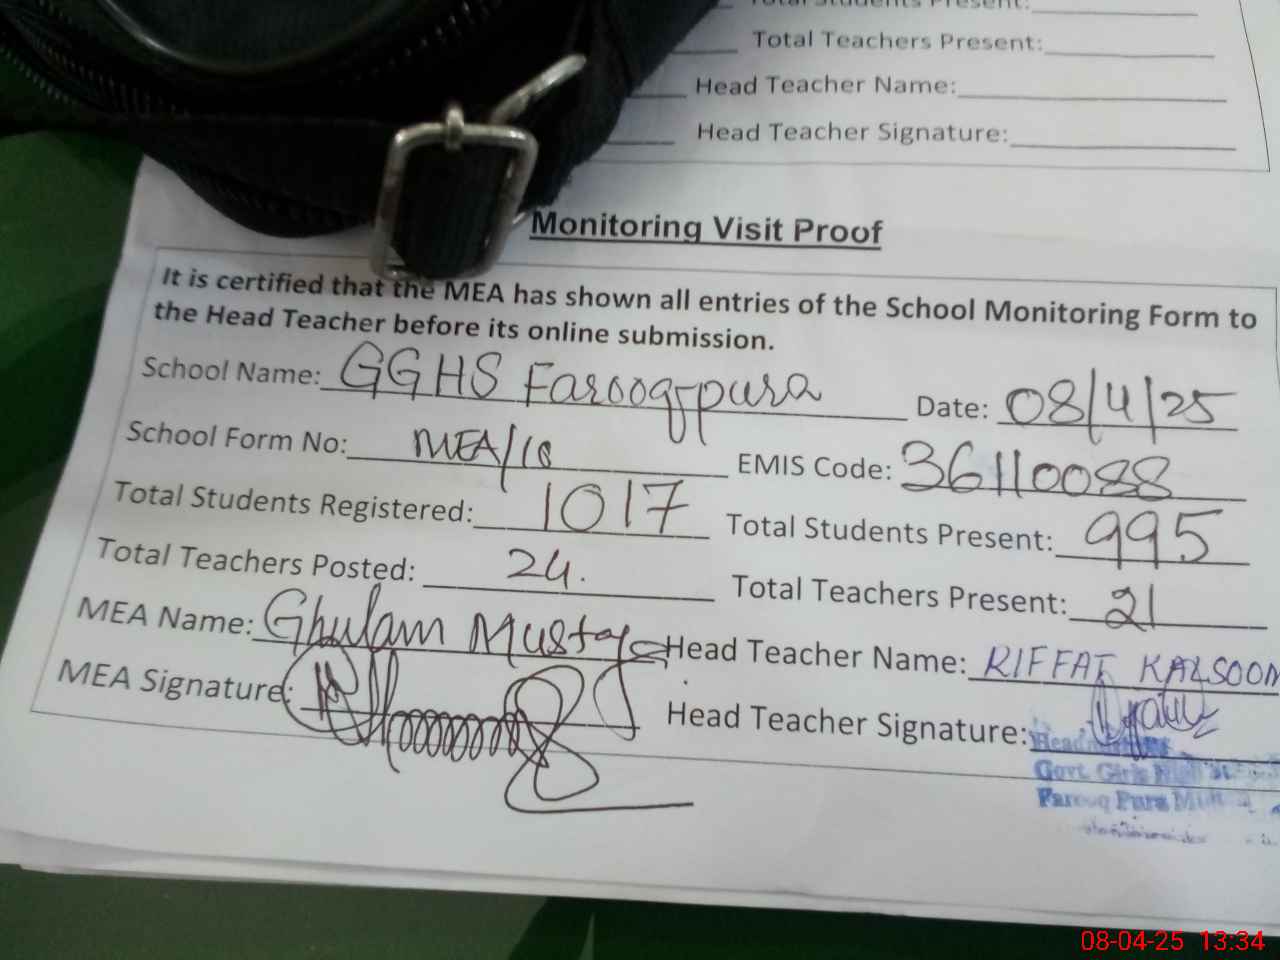 Total Students Present:
Total Teachers Present:
Head Teacher Name:
Head Teacher Signature:
Monitoring Visit Proof
It is certified that the MEA has shown all entries of the School Monitoring Form to
the Head Teacher before its online submission.
School Name: GGHS Farooqpura Date: 08/4/25
School Form No: MEA/18 EMIS Code: 36110088
Total Students Registered: 1017 Total Students Present: 995
Total Teachers Posted: 24. Total Teachers Present: 21
MEA Name: Ghulam Mustafa Head Teacher Name: RIFFAT KALSOOM
MEA Signature: Head Teacher Signature:
Govt. Girls High
Farooq Pura
08-04-25 13:34